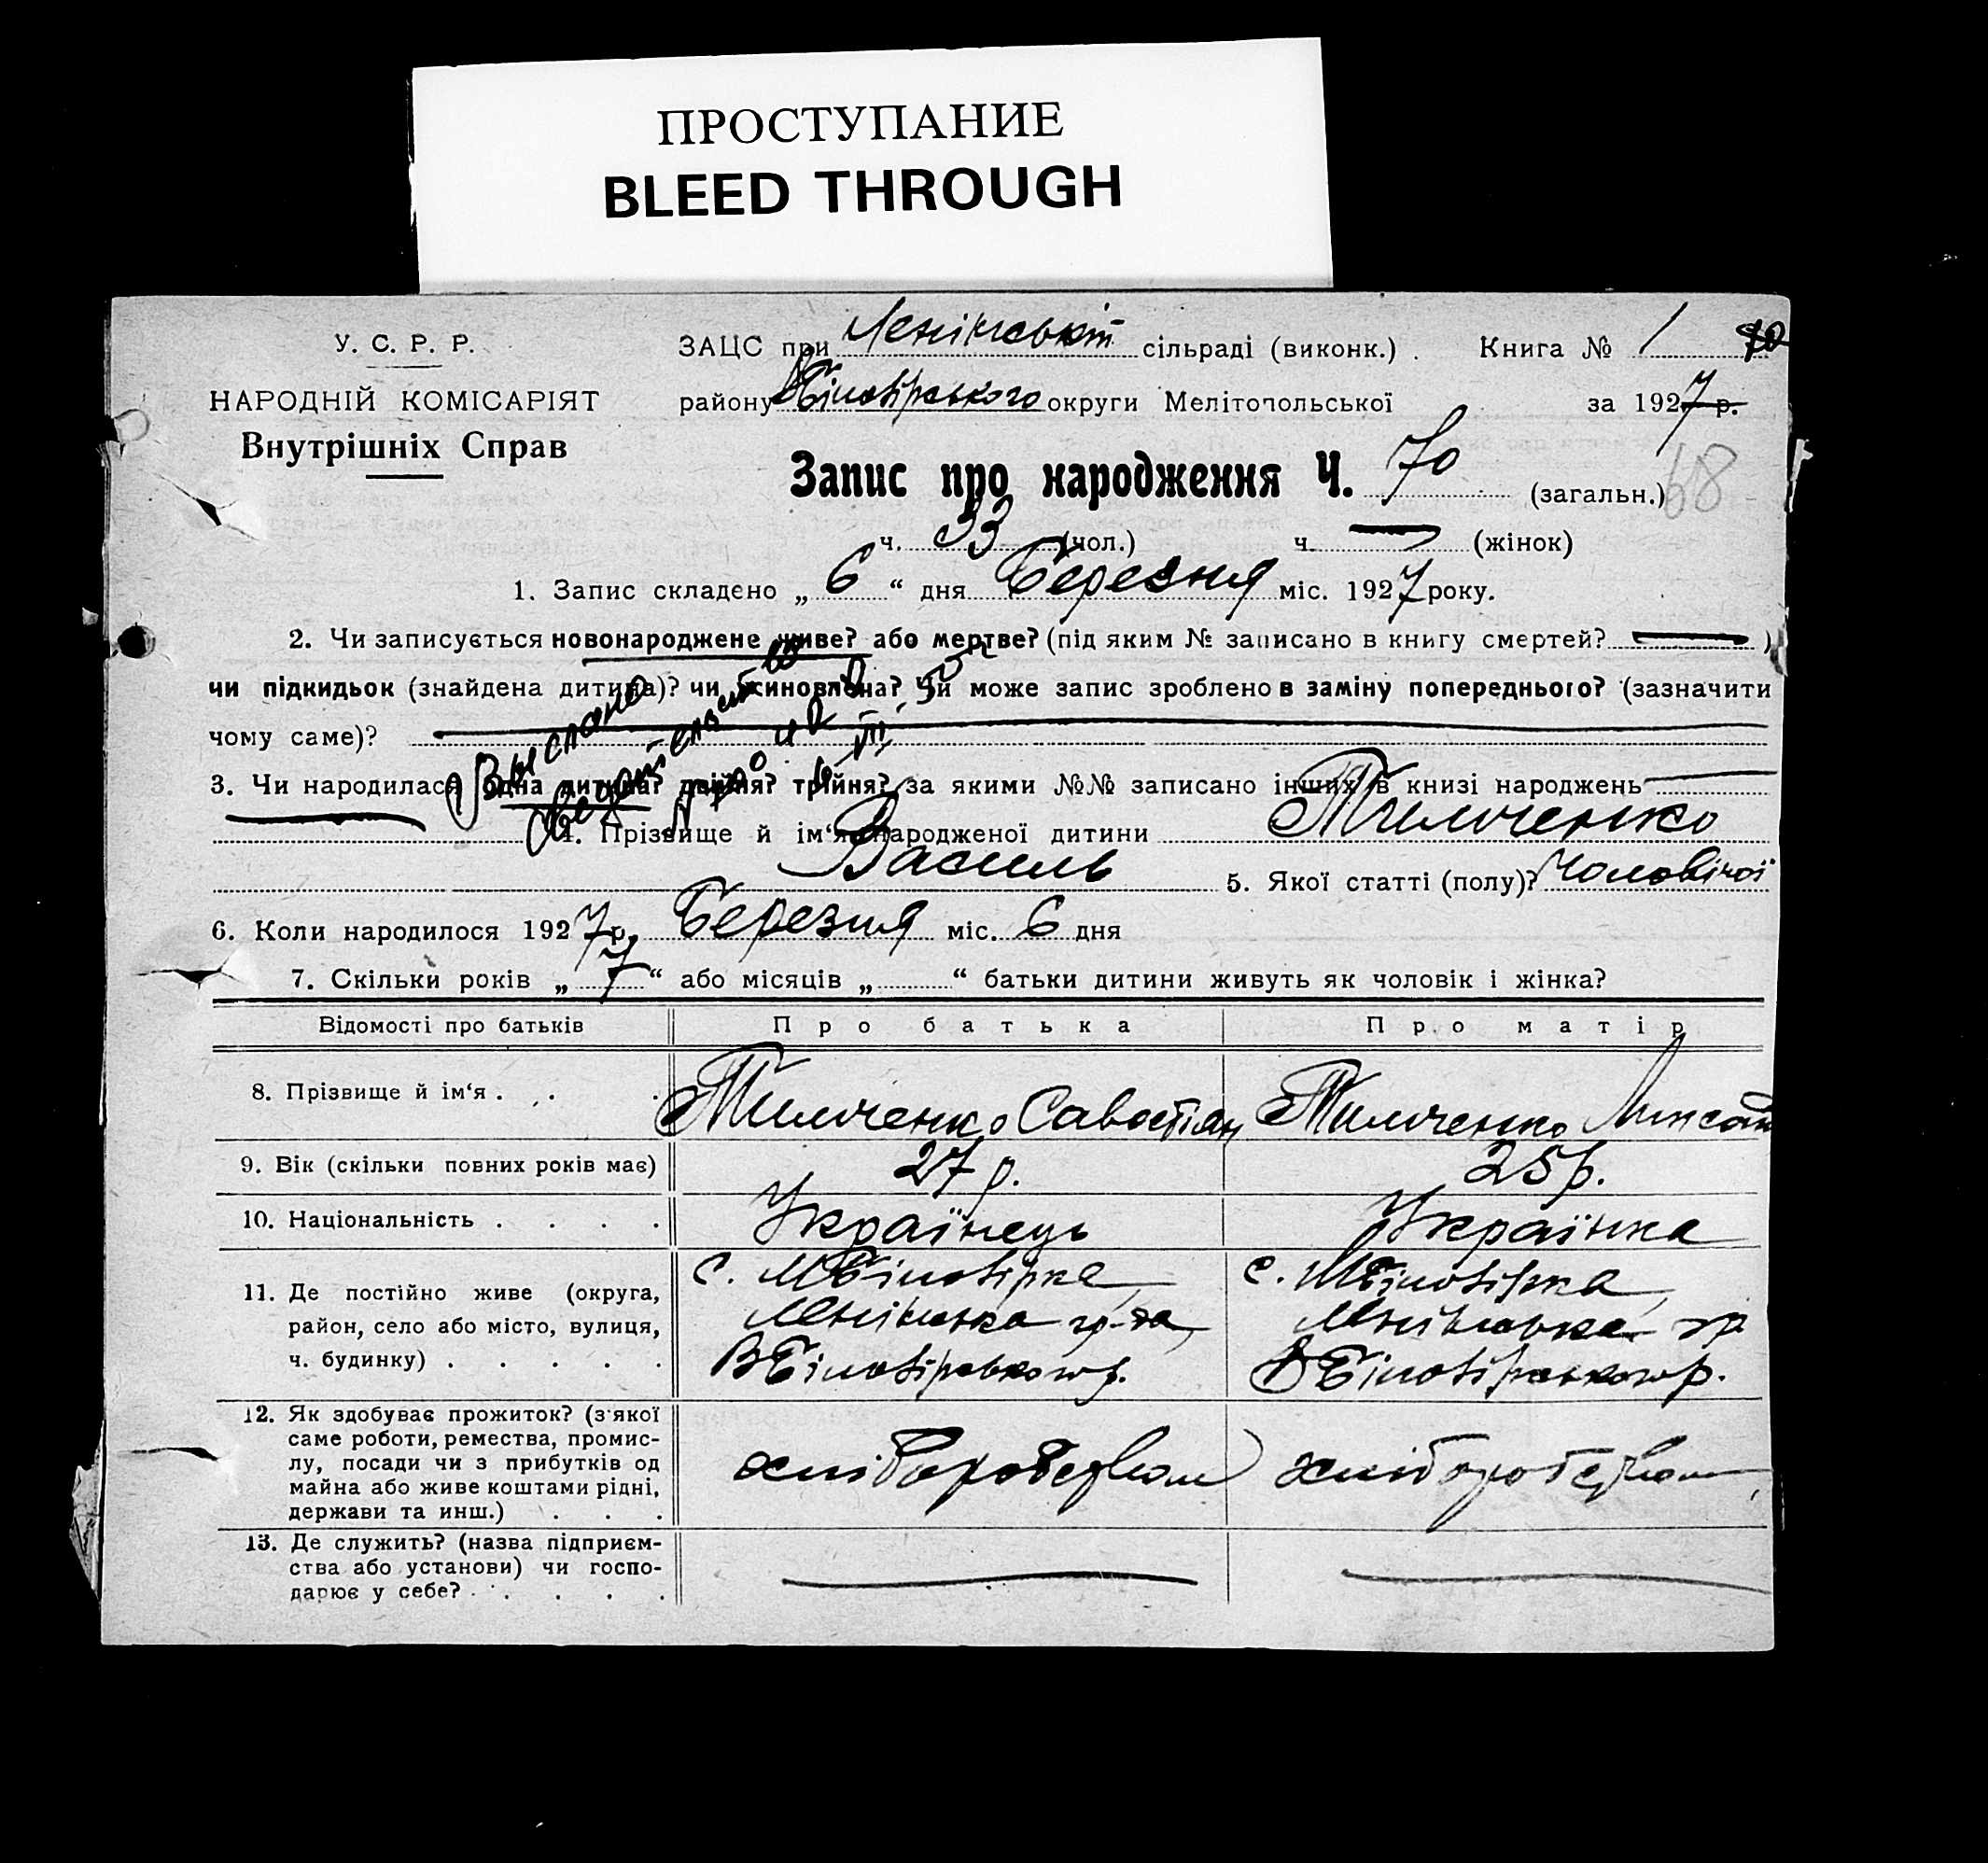 ПРОСТУПАНИЕ
BLEED THROUGH
У. С. Р. Р.
НАРОДНІЙ КОМІСАРІЯТ
Внутрішніх Справ
ЗАЦС при Ленінській сільраді (виконк.) . Книга № 1 70
району ВБілозірського округи Мелітопольської за 1927 р.
Запис про народження Ч. 70 (загальн.) 68
ч. 33 (чол.) ч. — (жінок)
1. Запис складено „ 6 “ дня Березня міс. 1927 року.
2. Чи записується новонароджене живе? або мертве? (під яким № записано в книгу смертей? — )
чи підкидьок (знайдена дитина)? чи всиновлена? Чи може запис зроблено в заміну попереднього? (зазначити
чому саме)?
3. Чи народилася одна дитина? двійня? трійня? за якими №№ записано інших в книзі народжень —
4. Прізвище й ім‘я народженої дитини Тимченко
Василь 5. Якої статті (полу)? Чоловічої
6. Коли народилося 1927 р. Березня міс. 6 дня
7. Скільки років „ 7 “ або місяців „ “ батьки дитини живуть як чоловік і жінка?
Відомості про батьків Про батька Про матір
8. Прізвище й ім‘я . . . Тимченко Савостіян Тимченко
9. Вік (скільки повних років має) 27 р. 25 р.
10. Національність . . . . Українець Українка
11. Де постійно живе (округа,
район, село або місто, вулиця,
ч. будинку) . . . . .
с. МБілозірка,
Ленінська
ВБілозірського р.
с. МБілозірка,
Ленінська
ВБілозірського р.
12. Як здобуває прожиток? (з якої
саме роботи, ремества, промис-
лу, посади чи з прибутків од
майна або живе коштами рідні,
держави та инш.) . . .
хліборобством хліборобством
13. Де служить? (назва підприєм-
ства або установи) чи госпо-
дарює у себе? . . . . .